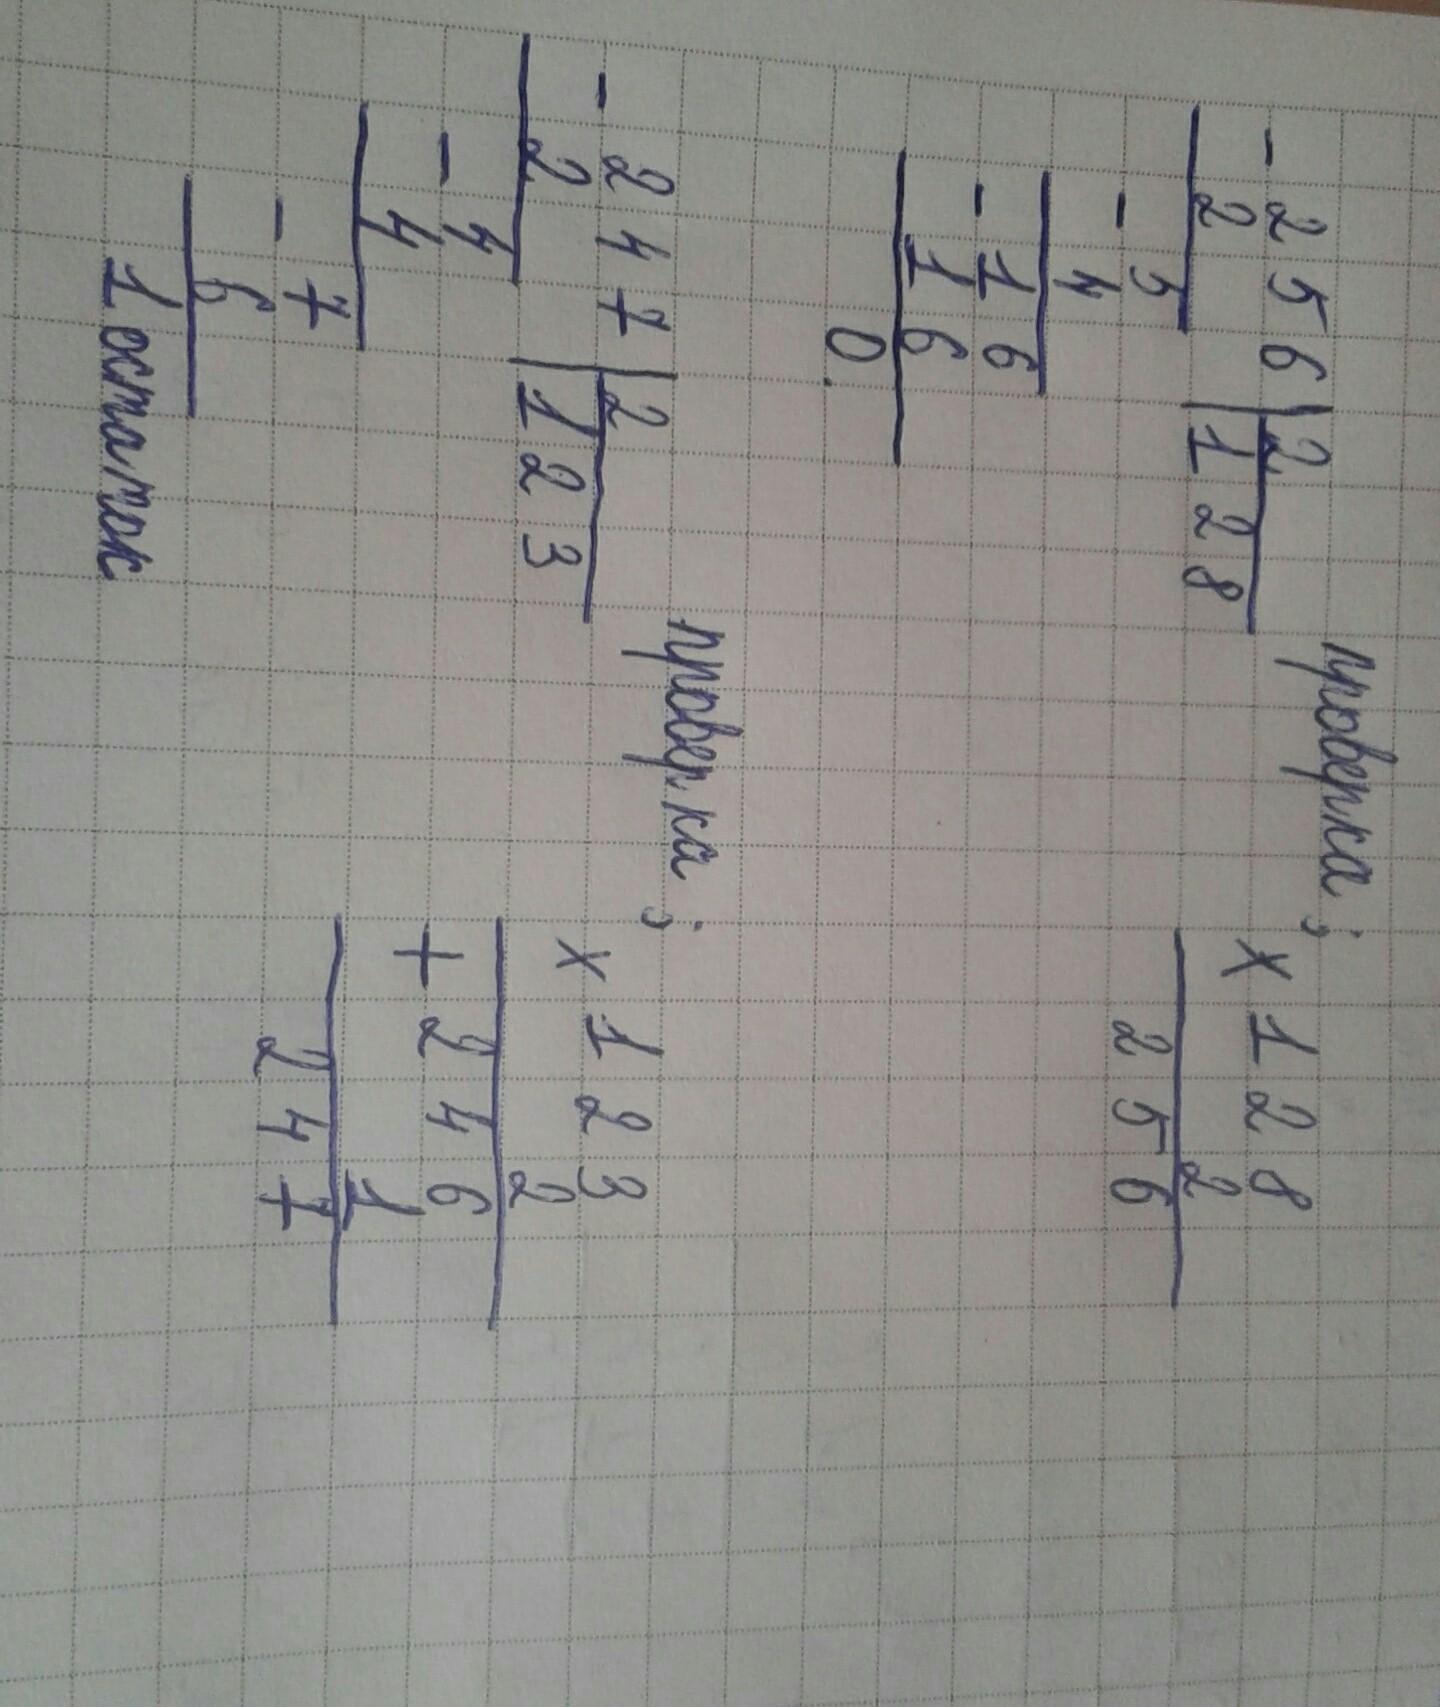 - 256 | 2 проверка; × 128
2 | 128 2
- 5 256
4
- 16
16
0.
- 247 | 2 проверка; × 123
2 | 123 2
- 4 + 246
4 1
- 7 247
6
1 остаток